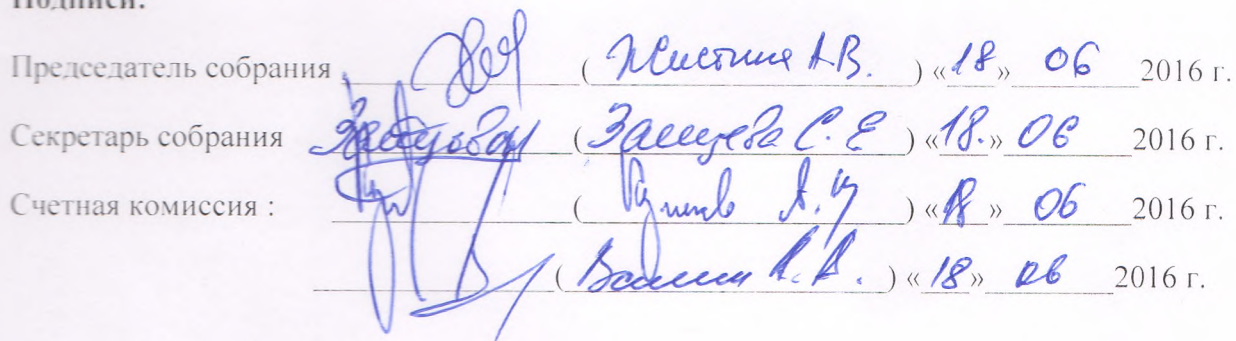 Подписи:
Председатель собрания ( Жистина А.В. ) «18» 06 2016 г.
Секретарь собрания ( Зайцева С.Е ) «18.» 06 2016 г.
Счетная комиссия : ( А.И ) «18» 06 2016 г.
( А.А. ) «18» 06 2016 г.